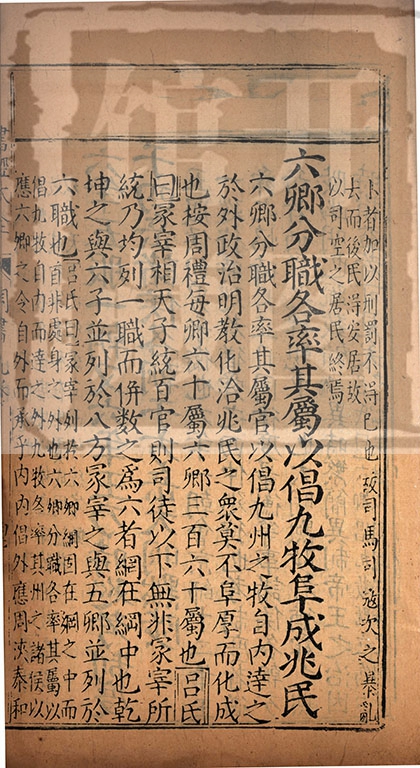 卜者加以刑罰不淂已也故司馬司寇次之暴亂
去而後民淂安居故
以司空之居民終焉
六卿分職各率其屬以倡九牧阜成兆民
六卿分職各率其屬官以倡九州之牧自內達之
於外政治明教化洽兆民之衆莫不阜厚而化成
也桉周禮每卿六十屬六卿三百六十屬也呂氏
曰冢宰相天子統百官則司徒以下無非冢宰所
統乃均列一職而倂數之爲六者網在綱中也乾
坤之與六子並列於八方冢宰之與五卿並列於
六職也
呂氏曰冢宰列於六卿綱固在網之中而
首非處身之外也六卿分職各率其屬以
倡九牧自內而達之外九牧各率其州之諸侯以
應六卿之令自外而承乎內內倡外應周浹泰和